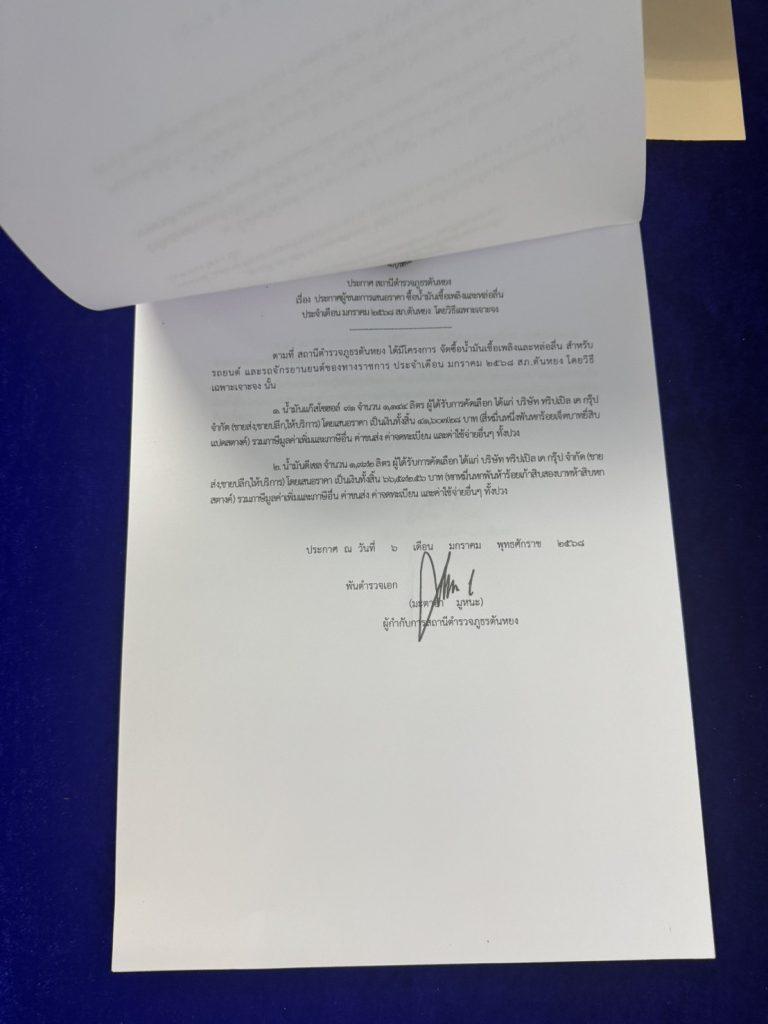 ประกาศ สถานีตำรวจภูธรตันหยง
เรื่อง ประกาศผู้ชนะการเสนอราคา ซื้อน้ำมันเชื้อเพลิงและหล่อลื่น
ประจำเดือน มกราคม ๒๕๖๘ สภ.ตันหยง โดยวิธีเฉพาะเจาะจง
ตามที่ สถานีตำรวจภูธรตันหยง ได้มีโครงการ จัดซื้อน้ำมันเชื้อเพลิงและหล่อลื่น สำหรับ
รถยนต์ และรถจักรยานยนต์ของทางราชการ ประจำเดือน มกราคม ๒๕๖๘ สภ.ตันหยง โดยวิธี
เฉพาะเจาะจง นั้น
๑. น้ำมันแก๊สโซฮอล์ ๙๑ จำนวน ๑,๑๔๔ ลิตร ผู้ได้รับการคัดเลือก ได้แก่ บริษัท ทริปเปิล เค กรุ๊ป
จำกัด (ขายส่ง,ขายปลีก,ให้บริการ) โดยเสนอราคา เป็นเงินทั้งสิ้น ๔๑,๖๐๗.๒๘ บาท (สี่หมื่นหนึ่งพันหกร้อยเจ็ดบาทยี่สิบ
แปดสตางค์) รวมภาษีมูลค่าเพิ่มและภาษีอื่น ค่าขนส่ง ค่าจดทะเบียน และค่าใช้จ่ายอื่นๆ ทั้งปวง
๒. น้ำมันดีเซล จำนวน ลิตร ผู้ได้รับการคัดเลือก ได้แก่ บริษัท ทริปเปิล เค กรุ๊ป จำกัด (ขาย
ส่ง,ขายปลีก,ให้บริการ) โดยเสนอราคา เป็นเงินทั้งสิ้น ๖๖,๕๙๒.๕๖ บาท (หกหมื่นหกพันห้าร้อยเก้าสิบสองบาทห้าสิบหก
สตางค์) รวมภาษีมูลค่าเพิ่มและภาษีอื่น ค่าขนส่ง ค่าจดทะเบียน และค่าใช้จ่ายอื่นๆ ทั้งปวง
ประกาศ ณ วันที่ ๖ เดือน มกราคม พุทธศักราช ๒๕๖๘
พันตำรวจเอก
มูหนะ)
ผู้กำกับการสถานีตำรวจภูธรตันหยง